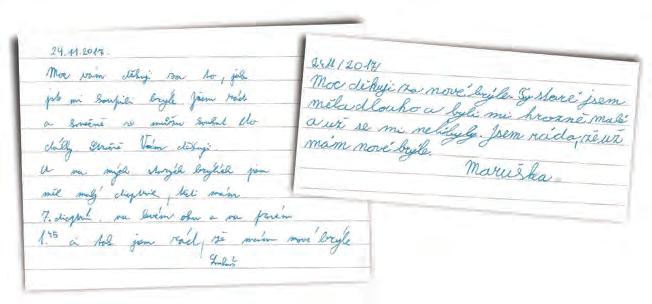 24.11.2017.
Moc vám děkuji za to, jak
jste mi koupili brýle. Jsem rád
a konečně se můžu koukat do
dálky. Strašně Vám děkuji.
A na mých starých brýlích jsem
měl malý dioptrie, teď mám
7. dioptrií. na levém oku a na pravém
1.45 a tak jsem rád, že mám nové brýle
24.11/2017/
Moc děkuji za nové brýle. Ty staré jsem
měla dlouho a byli mi hrozně malé
a už se mi nelíbyly. Jsem ráda, že už
mám nové brýle.
Maruška.